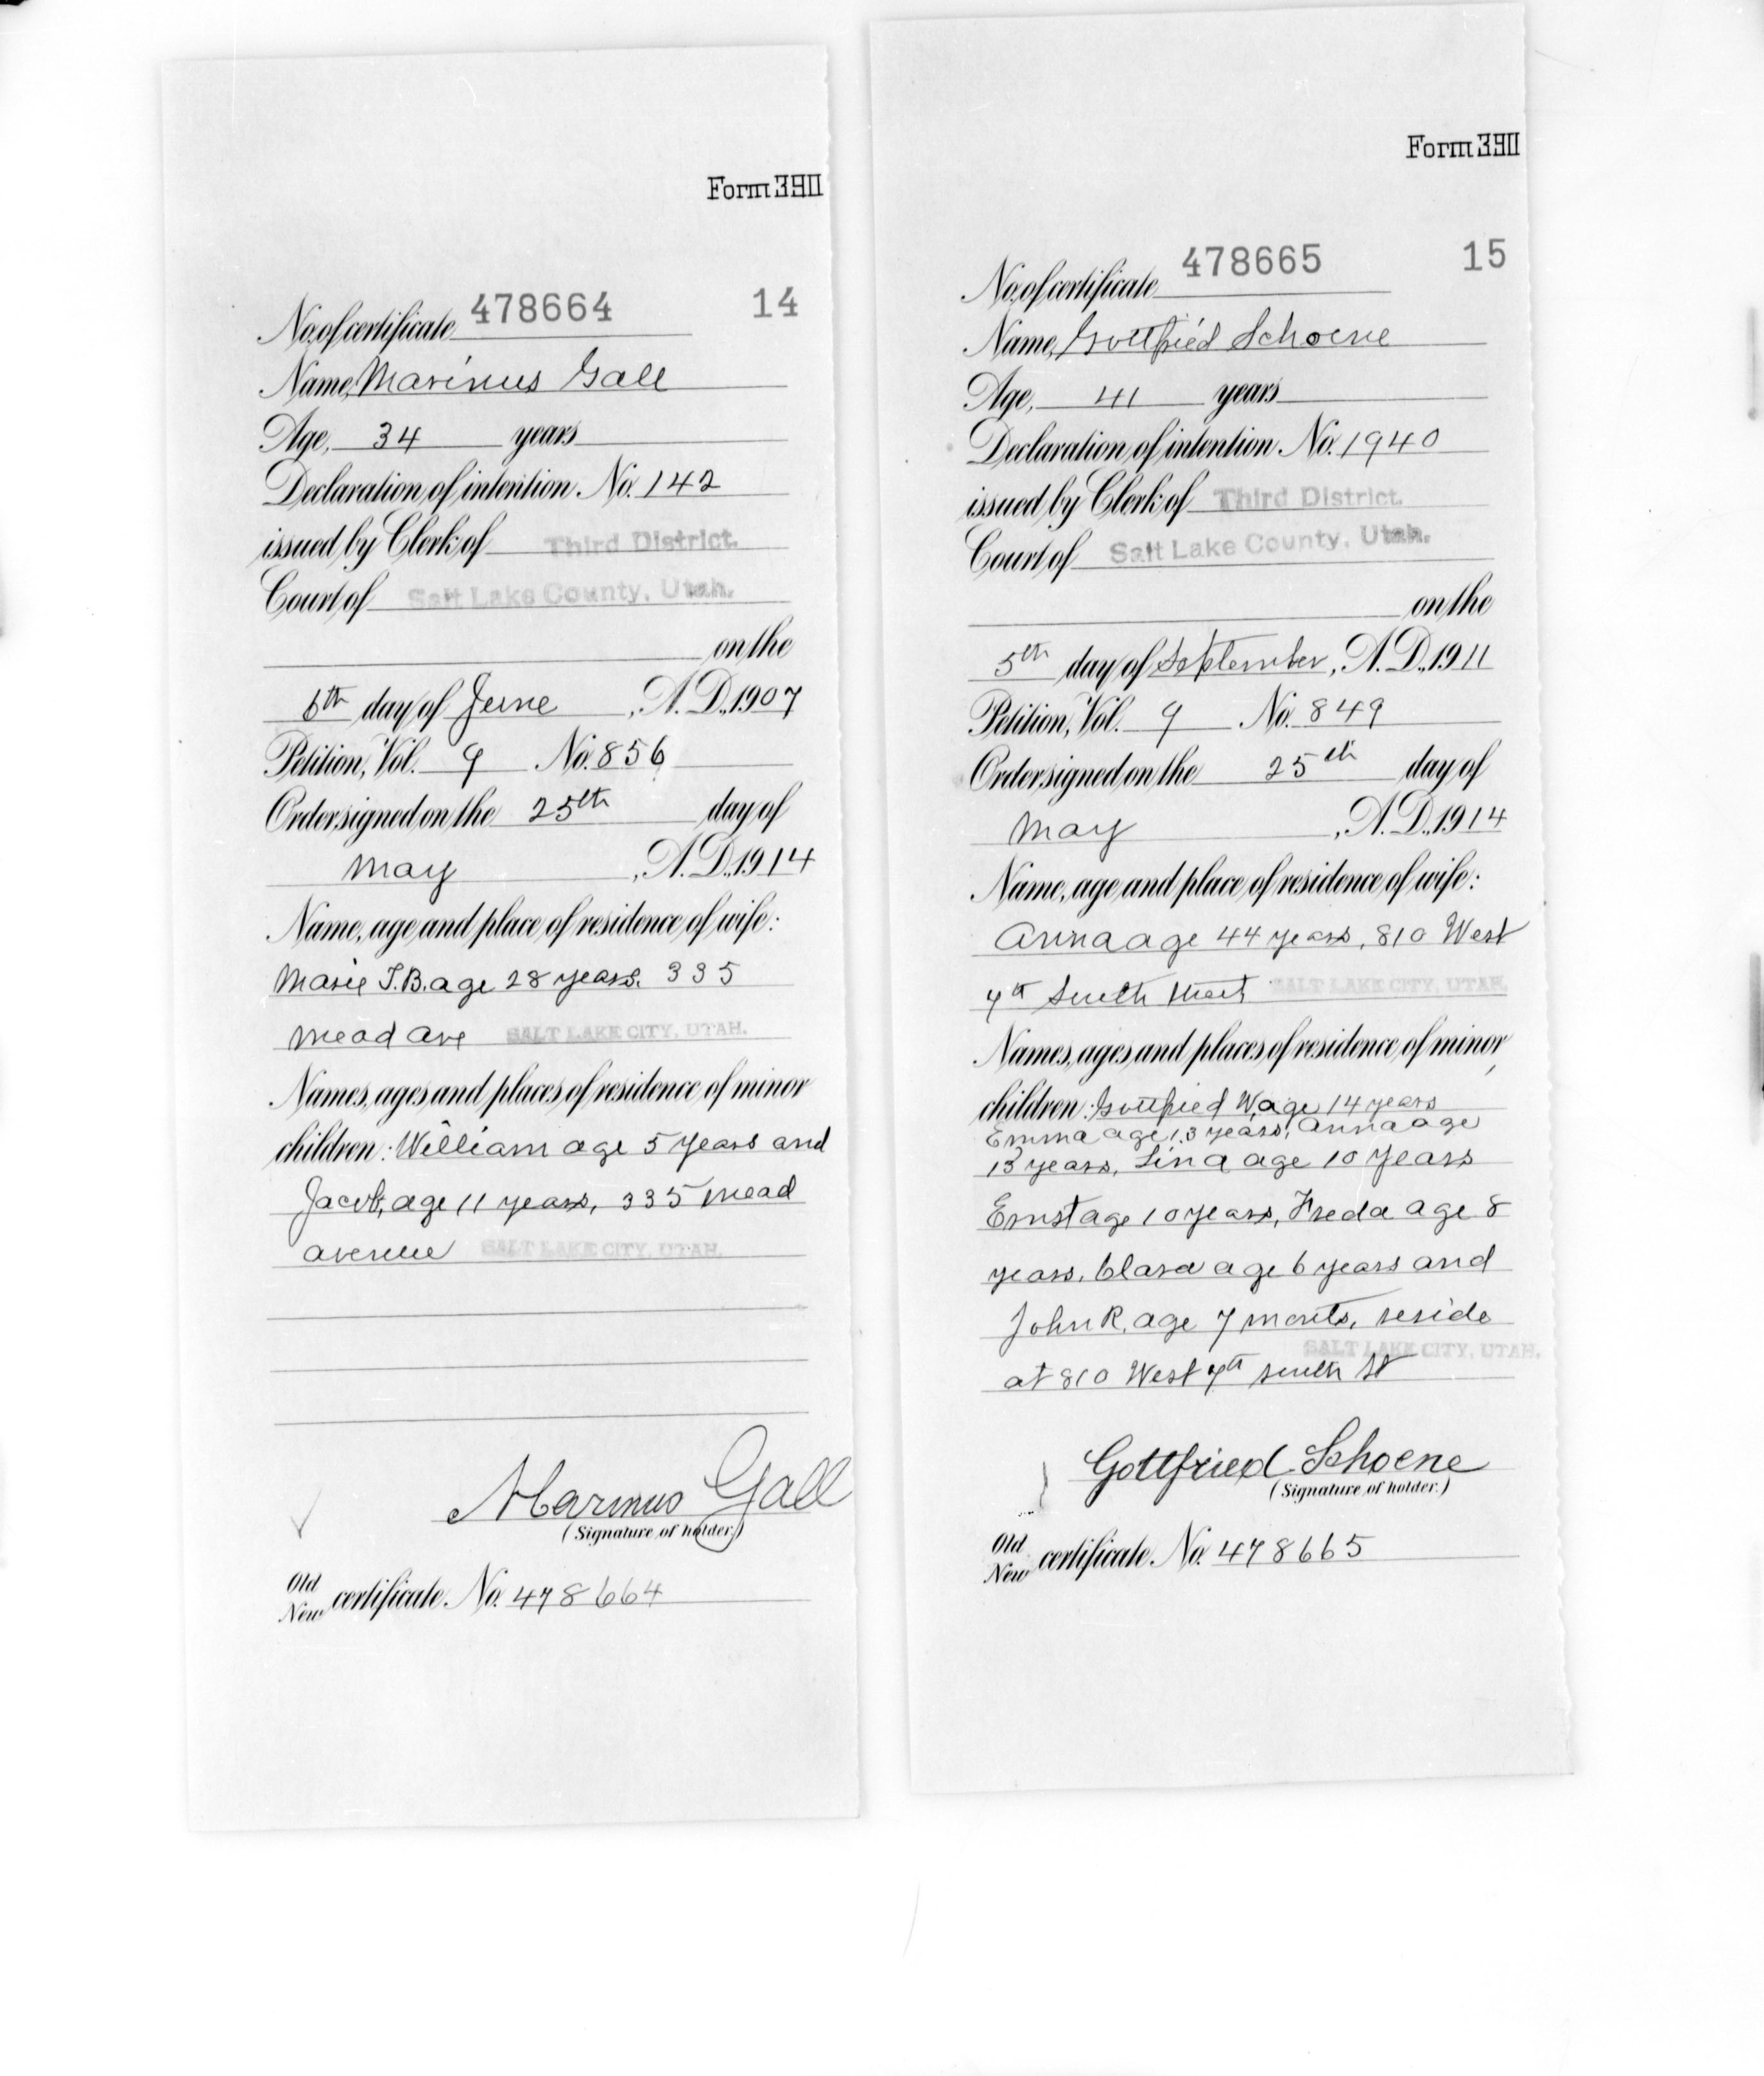 Form 390
No. of certificate 478664 14
Name, Marinus Gall
Age, 34 years
Declaration of intention No. 142
issued by Clerk of Third District.
Court of Salt Lake County, Utah.
on the
6th day of June, A. D., 1907
Petition, Vol. 9 No. 856
Order signed on the 25th day of
May, A. D., 1914
Name, age and place of residence of wife:
Marie J.B. age 28 years. 335
Mead Ave SALT LAKE CITY, UTAH.
Names, ages and places of residence of minor
children: William age 5 years and
Jacob, age 11 years, 335 Mead
avenue SALT LAKE CITY, UTAH.
Marinus Gall
(Signature of holder.)
Old
New certificate No. 478664
Form 390
No. of certificate 478665 15
Name, Gottfried Schoene
Age, 41 years
Declaration of intention No. 1940
issued by Clerk of Third District.
Court of Salt Lake County, Utah.
on the
5th day of September, A. D., 1911
Petition, Vol. 9 No. 849
Order signed on the 25th day of
May, A. D., 1914
Name, age and place of residence of wife:
Anna age 44 years, 810 West
7th South Street SALT LAKE CITY, UTAH.
Names, ages and places of residence of minor
children: Gottfried W. age 14 years
Emma age 13 years, Anna age
13 years, Lina age 10 years
Ernst age 10 years, Freda age 8
years, Clara age 6 years and
John R. age 7 months, reside
SALT LAKE CITY, UTAH.
at 810 West 7th South St
Gottfried Schoene
(Signature of holder.)
Old
New certificate No. 478665